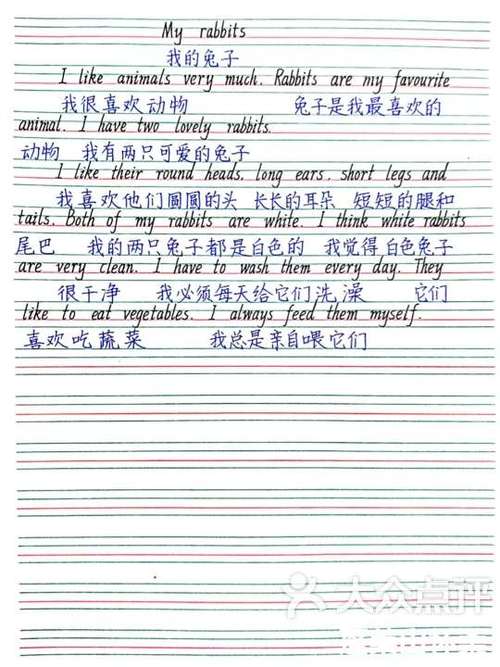 My rabbits
我的兔子
I like animals very much. Rabbits are my favourite
我很喜欢动物 兔子是我最喜欢的
animal. I have two lovely rabbits.
动物 我有两只可爱的兔子
I like their round heads, long ears, short legs and
我喜欢他们圆圆的头 长长的耳朵 短短的腿和
tails. Both of my rabbits are white. I think white rabbits
尾巴 我的两只兔子都是白色的 我觉得白色兔子
are very clean. I have to wash them every day. They
很干净 我必须每天给它们洗澡 它们
like to eat vegetables. I always feed them myself.
喜欢吃蔬菜 我总是亲自喂它们
大众点评